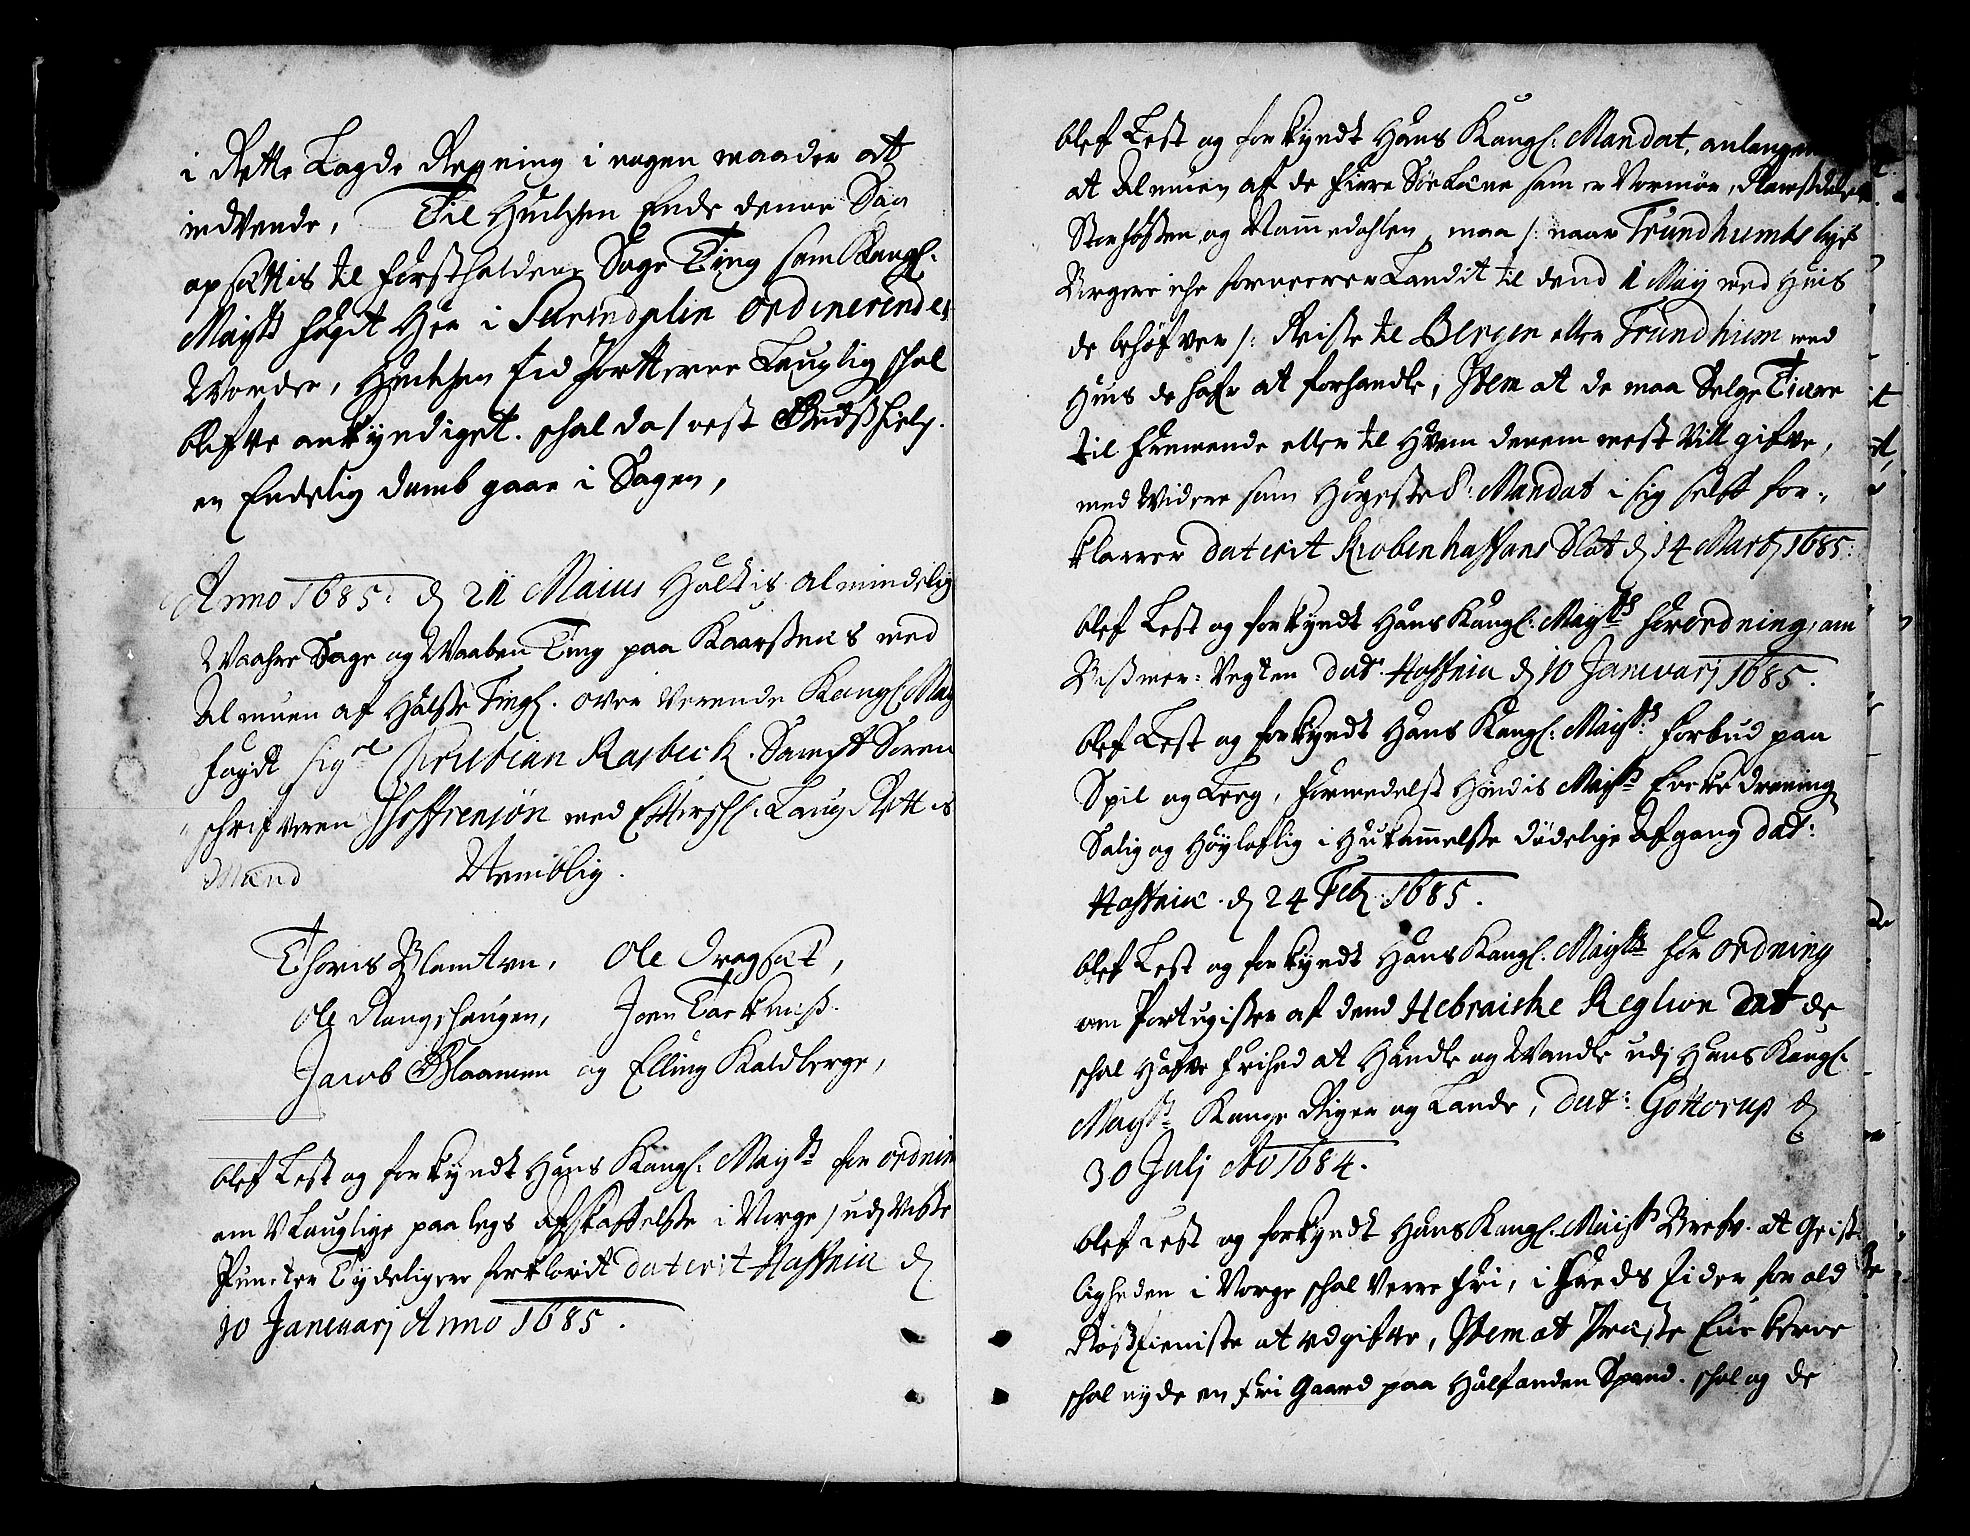 i Rette Lagde Regning i nogen maader at
indvende, Til Huilchen Ende denne Sag
opsættis til førstholdene Sage Ting som Kongl:
Mayts fogit Her i Surendahlen ordinerendes
Worder, Huilchen tid Porterne Lauglig schal
blefve ankyndiget. schal da / vest Gudsshielp.
en Endelig domb gaae i Sagen,
Anno 1685: d 21 Maius Holtis almindelig
Waahre Sage og Waaben Ting paa Kaarsnes med
Almuen af Halse Tingl. over verende Kongl: May
fogdt Sigr Christian Rasbeck. Sampt Soren
schrifveren med Efterschl: Laug Rettis
Mænd Nemblig.
Thoris Ole Dragset,
Ole Rangshaugen, Joen Tarknæs.
Jacob Glaamen og Elling Kaldberge,
blef Lest og forkyndt Hans Kongl: Mayts for ordnin
om Ulauglige paalegs Afskaffelse i Norge / udj Visse
Puncter Tydeligere forklarit daterit Haffnia d
10 Januarj Anno 1685.
blef Lest og forkyndt Hans Kongl: Mandat, anlangen
at Almuen af de fierre Sørleene som er Normør, Romsdalen
Storfossen og Nammedahlen, maa /: naar Trundhiembs byes
Borgere iche fornerer Landit til dend 1 May med Huis
de behøfver /: Reise til Bergen eller Trundhiem med
Huis de hafr at forhandle, Item at de maa Selge Tiære
til fremmende eller til Hvem denem mest Vill gifve,
med Widere som Høgste B: Mandat i sig self for-
klarer daterit Kiobenhaffans Slot d 14 Martj 1685:
blef Lest og forkyndt Hans Kongl: Mayts forordning, om
Bismer: Vegten dat. Haffnia d 10 Januarj 1685.
blef Lest og forkyndt Hans Kongl: Mayts forbud paa
Spil og Leeg, formedelst Hindis Mayts Encke droning
Salig og Høyloflig i Hukammelse dødelige Afgang dat:
Haffnia. d 24 Feb: 1685.
blef Lest og forkyndt Hans Kongl: Mayts for ordning
om Portugisser af dend Hebraiske Reglion dat de
schal Hafve frihed at Handle og Wandle udj Hans Kongl.
Mayts Konge Riger og Lande, dat: Gottorup d
30 Julj Ao 1684.
blef Lest og forkyndt Hans Kongl: Mayts Brefv. at Geist
ligheden i Norge schal verre fri, i freds tider for old
Rostieniste at udgifve, Item at Præste Enckerne
schal nyde en fri Gaard paa Halfanden Spand. schal og de